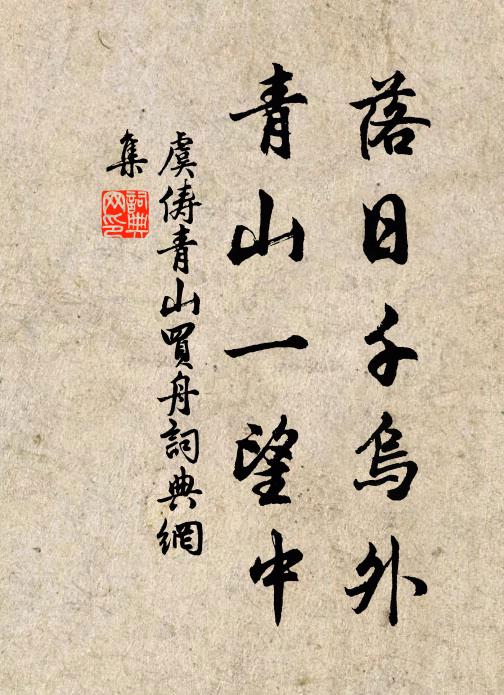 落日千烏外
青山一望中
虞俦青山買舟詞典網
集
詞典
网印